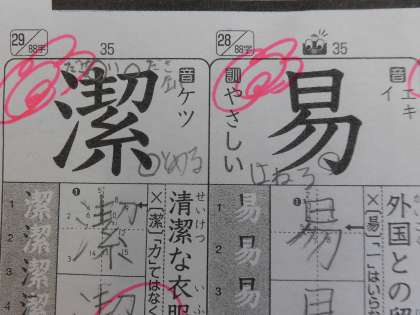 28/88字
35
易
音 エキ
イ
訓 やさしい
はねる
外国との
×[易]「一」はいらな
易
1
2
3
29/88字
35
潔
音 ケツ
とめる
せいけつ いふ
清潔な衣服
×[潔]「力」ではなく
潔
1
2
3
4